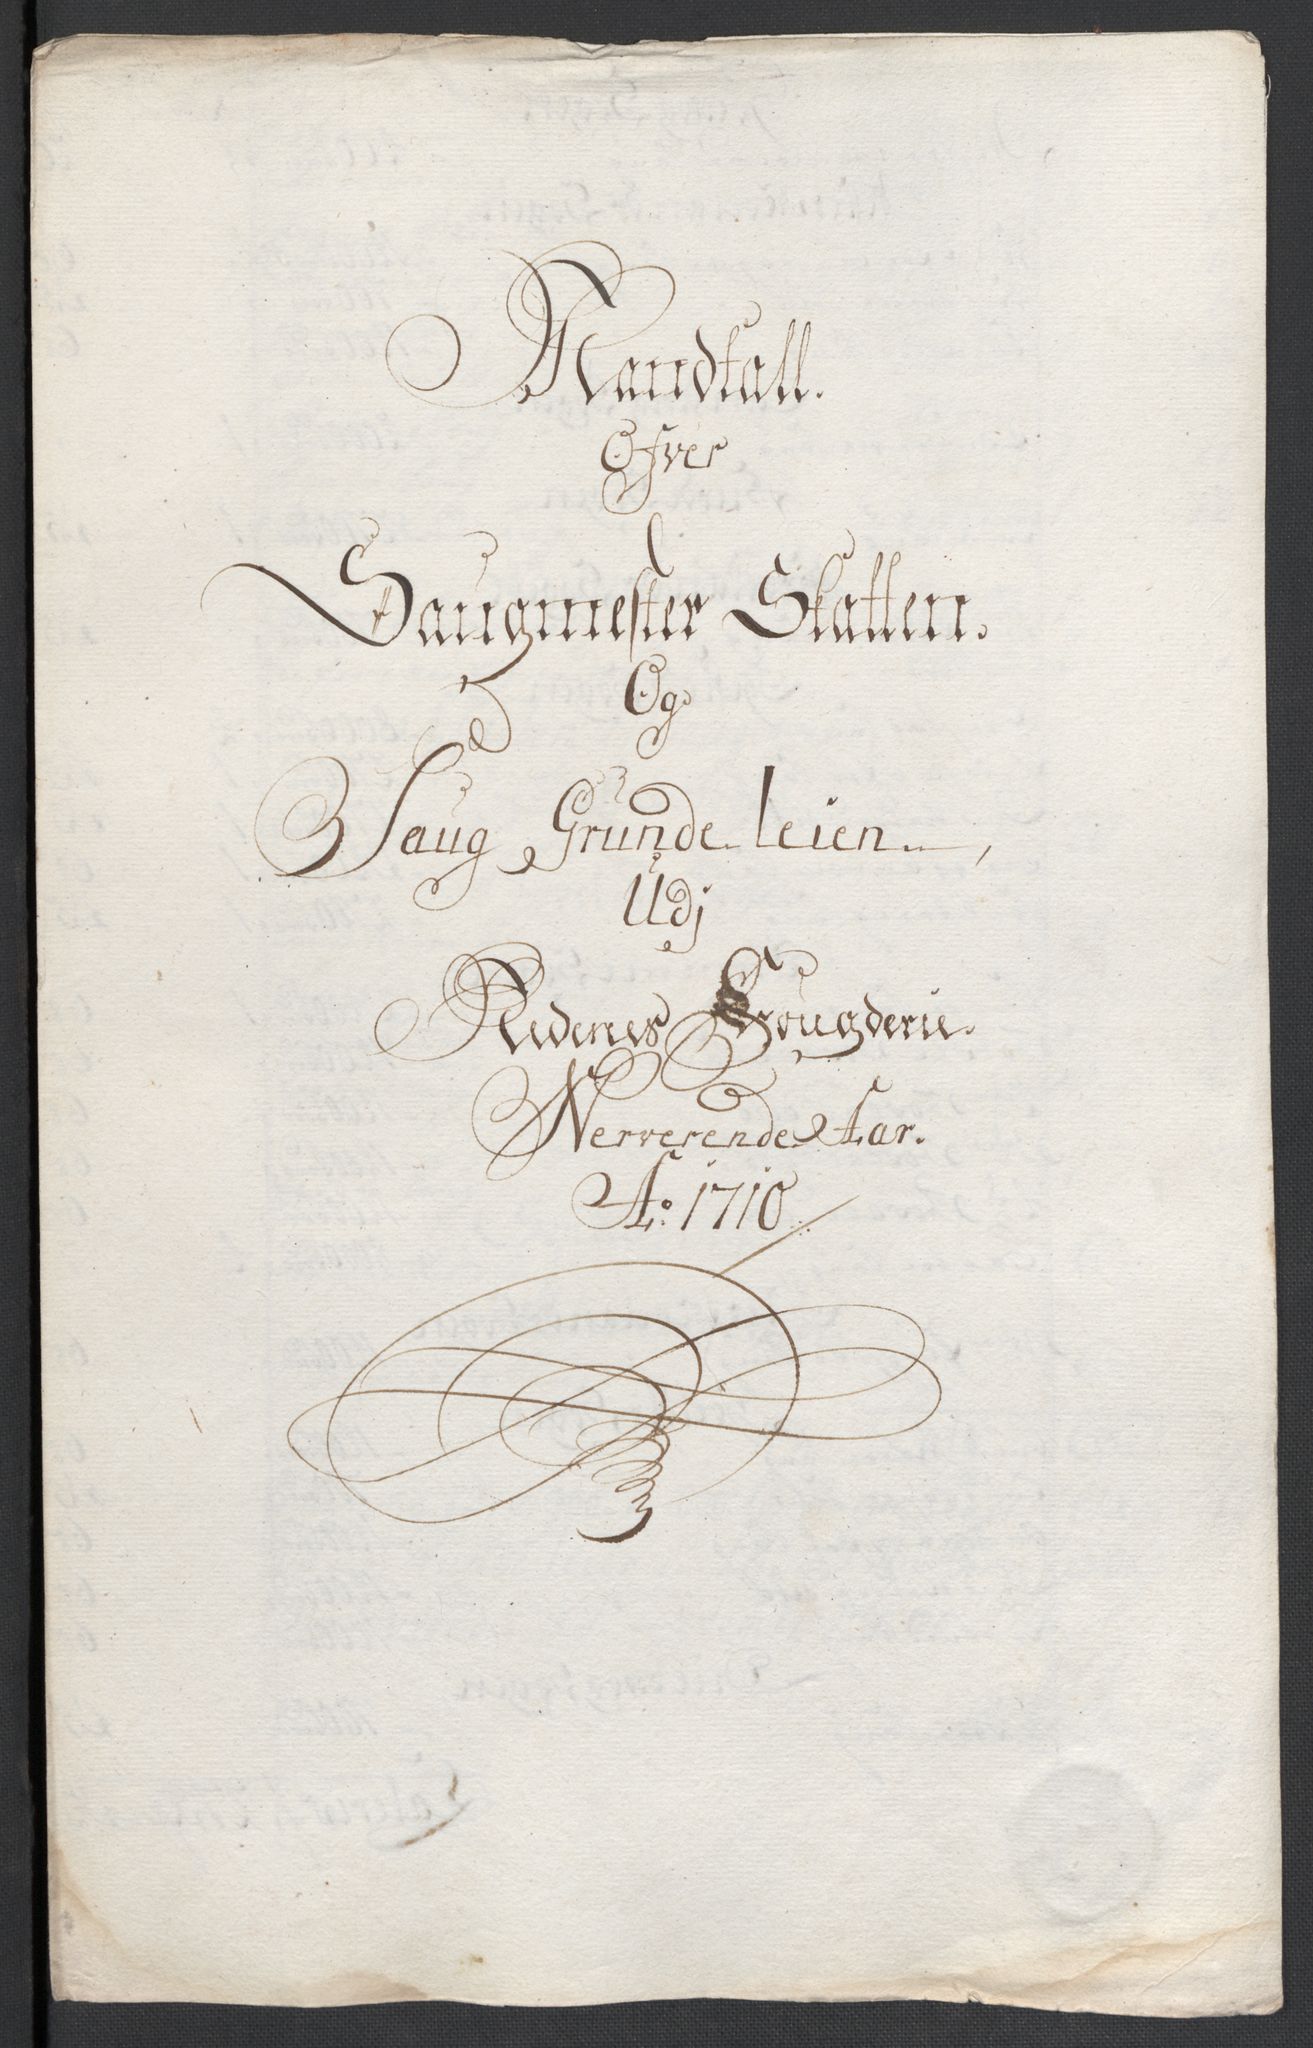 Mandtall.
Ofver
Saugmester Skatten.
Og
Saug Grunde leien,
Udj
Nedenes Fougderie.
Nerverende Aar.
Ao: 1710